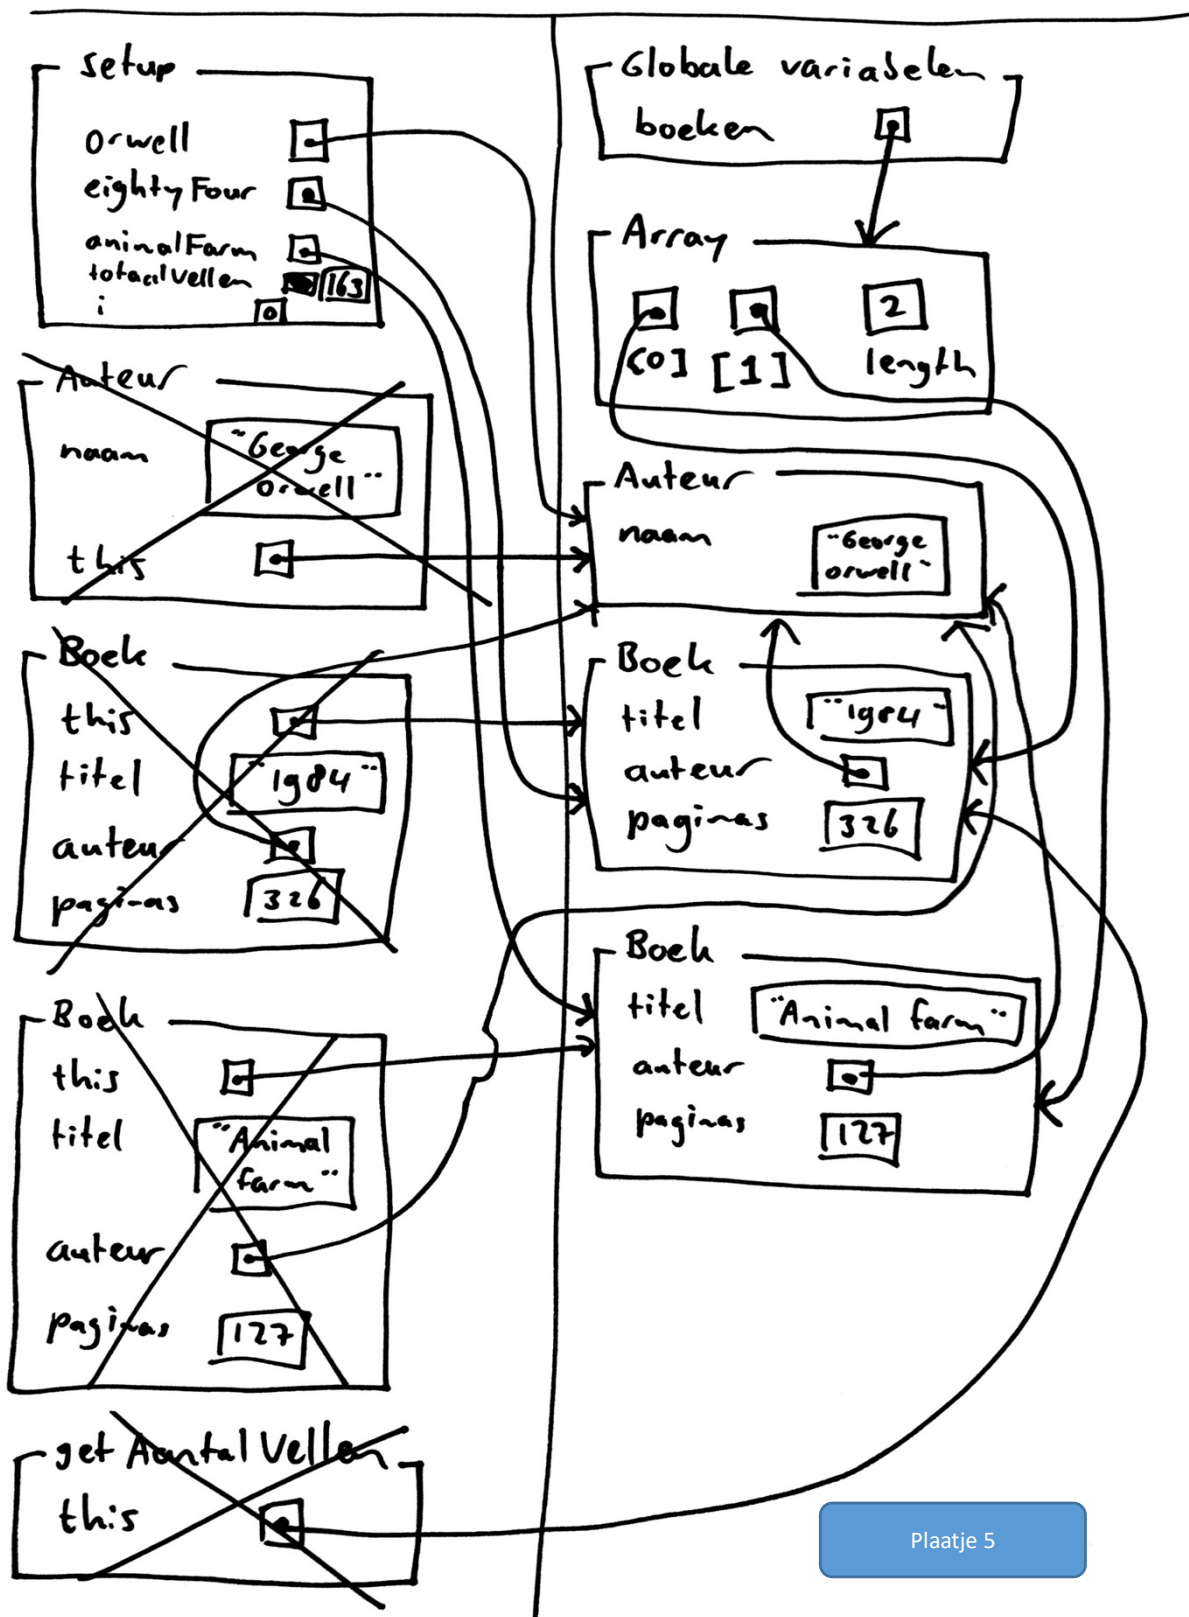 setup
Orwell
eightyFour
animalFarm
totaalVellen 163
i 0
Auteur
naam "George
Orwell"
this
Boek
this
titel "1984"
auteur
paginas 326
Boek
this
titel "Animal
farm"
auteur
paginas 127
getAantalVellen
this
Globale variabelen
boeken
Array
2
[0] [1] length
Auteur
naam "George
orwell"
Boek
titel "1984"
auteur
paginas 326
Boek
titel "Animal farm"
auteur
paginas 127
Plaatje 5